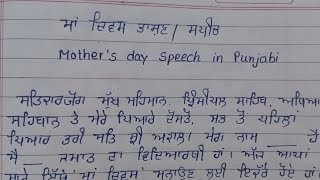 ਮਾਂ ਦਿਵਸ ਭਾਸ਼ਣ / ਸਪੀਚ
Mother's day speech in Punjabi
ਸਤਿਕਾਰਯੋਗ ਮੁੱਖ ਮਹਿਮਾਨ, ਪ੍ਰਿੰਸੀਪਲ ਸਾਹਿਬ, ਅਧਿਆ
ਸਹਿਬਾਨ ਤੇ ਮੇਰੇ ਪਿਆਰੇ ਦੋਸਤੋ, ਸਭ ਤੋਂ ਪਹਿਲਾਂ
ਪਿਆਰ ਭਰੀ ਸਤਿ ਸ਼੍ਰੀ ਅਕਾਲ। ਮੇਰਾ ਨਾਮ ___ ਹੈ
ਮੈਂ __ ਜਮਾਤ ਦਾ ਵਿਦਿਆਰਥੀ ਹਾਂ। ਅੱਜ ਆਪਾਂ
ਸਾਰੇ ਇੱਥੇ 'ਮਾਂ ਦਿਵਸ' ਮਨਾਉਣ ਲਈ ਇਕੱਠੇ ਹੋਏ ਹਾਂ